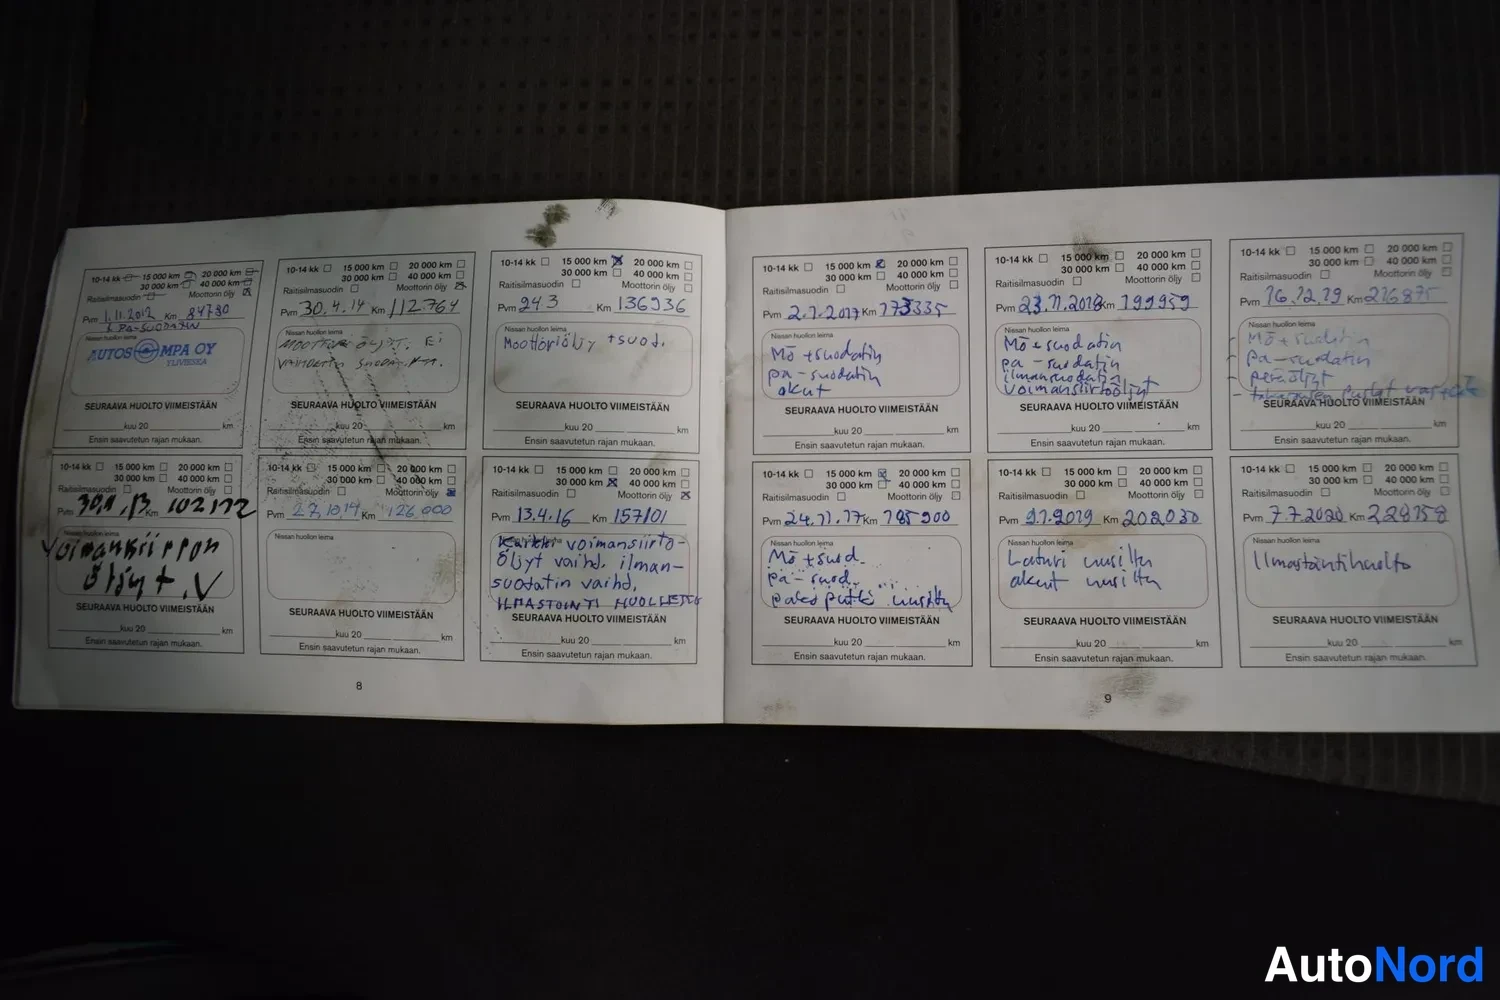 10-14 kk 15 000 km 20 000 km
30 000 km 40 000 km
Raitisilmasuodin Moottorin öljy
Pvm 1.11.2012 Km 84730
PA-SUODATIN
Nissan huollon leima
AUTOS MPA OY
YLIVIESKA
SEURAAVA HUOLTO VIIMEISTÄÄN
kuu 20 km
Ensin saavutetun rajan mukaan.
10-14 kk 15 000 km 20 000 km
30 000 km 40 000 km
Raitisilmasuodin Moottorin öljy
Pvm 30.4.14 Km 112.764
Nissan huollon leima
MOOTTORI ÖLJYT. EI
SEURAAVA HUOLTO VIIMEISTÄÄN
kuu 20 km
Ensin saavutetun rajan mukaan.
10-14 kk 15 000 km 20 000 km
30 000 km 40 000 km
Raitisilmasuodin Moottorin öljy
Pvm 24.3 Km 136936
Nissan huollon leima
Moottoriöljy + suod.
SEURAAVA HUOLTO VIIMEISTÄÄN
kuu 20 km
Ensin saavutetun rajan mukaan.
10-14 kk 15 000 km 20 000 km
30 000 km 40 000 km
Raitisilmasuodin Moottorin öljy
Pvm 2.1.2017 Km 173335
Nissan huollon leima
Mö + suodatin
pa-suodatin
akut
SEURAAVA HUOLTO VIIMEISTÄÄN
kuu 20 km
Ensin saavutetun rajan mukaan.
10-14 kk 15 000 km 20 000 km
30 000 km 40 000 km
Raitisilmasuodin Moottorin öljy
Pvm 23.11.2018 Km 199959
Nissan huollon leima
Mö + suodatin
pa-suodatin
ilmansuodatin +
voimansiirtoöljyt
SEURAAVA HUOLTO VIIMEISTÄÄN
kuu 20 km
Ensin saavutetun rajan mukaan.
10-14 kk 15 000 km 20 000 km
30 000 km 40 000 km
Raitisilmasuodin Moottorin öljy
Pvm 16.12.19 Km 216875
Nissan huollon leima
- Mö + suodatin
- pa-suodatin
- peräöljyt
SEURAAVA HUOLTO VIIMEISTÄÄN
kuu 20 km
Ensin saavutetun rajan mukaan.
10-14 kk 15 000 km 20 000 km
30 000 km 40 000 km
Raitisilmasuodin Moottorin öljy
Pvm Km 102172
Nissan huollon leima
Voimansiirron
öljyt. V
SEURAAVA HUOLTO VIIMEISTÄÄN
kuu 20 km
Ensin saavutetun rajan mukaan.
10-14 kk 15 000 km 20 000 km
30 000 km 40 000 km
Raitisilmasuodin Moottorin öljy
Pvm 27.10.14 Km 126.000
Nissan huollon leima
SEURAAVA HUOLTO VIIMEISTÄÄN
kuu 20 km
Ensin saavutetun rajan mukaan.
10-14 kk 15 000 km 20 000 km
30 000 km 40 000 km
Raitisilmasuodin Moottorin öljy
Pvm 13.4.16 Km 157101
Nissan huollon leima
Kaikki voimansiirto-
öljyt vaihd. ilman-
suodatin vaihd.
ILMASTOINTI HUOLLETTU
SEURAAVA HUOLTO VIIMEISTÄÄN
kuu 20 km
Ensin saavutetun rajan mukaan.
10-14 kk 15 000 km 20 000 km
30 000 km 40 000 km
Raitisilmasuodin Moottorin öljy
Pvm 24.11.17 Km 185900
Nissan huollon leima
Mö + suod.
pa-suod.
pakoputki uusittu
SEURAAVA HUOLTO VIIMEISTÄÄN
kuu 20 km
Ensin saavutetun rajan mukaan.
10-14 kk 15 000 km 20 000 km
30 000 km 40 000 km
Raitisilmasuodin Moottorin öljy
Pvm 9.1.2019 Km 202030
Nissan huollon leima
Laturi uusittu
akut uusittu
SEURAAVA HUOLTO VIIMEISTÄÄN
kuu 20 km
Ensin saavutetun rajan mukaan.
10-14 kk 15 000 km 20 000 km
30 000 km 40 000 km
Raitisilmasuodin Moottorin öljy
Pvm 7.7.2020 Km 228158
Nissan huollon leima
Ilmastointihuolto
SEURAAVA HUOLTO VIIMEISTÄÄN
kuu 20 km
Ensin saavutetun rajan mukaan.
8
9
AutoNord